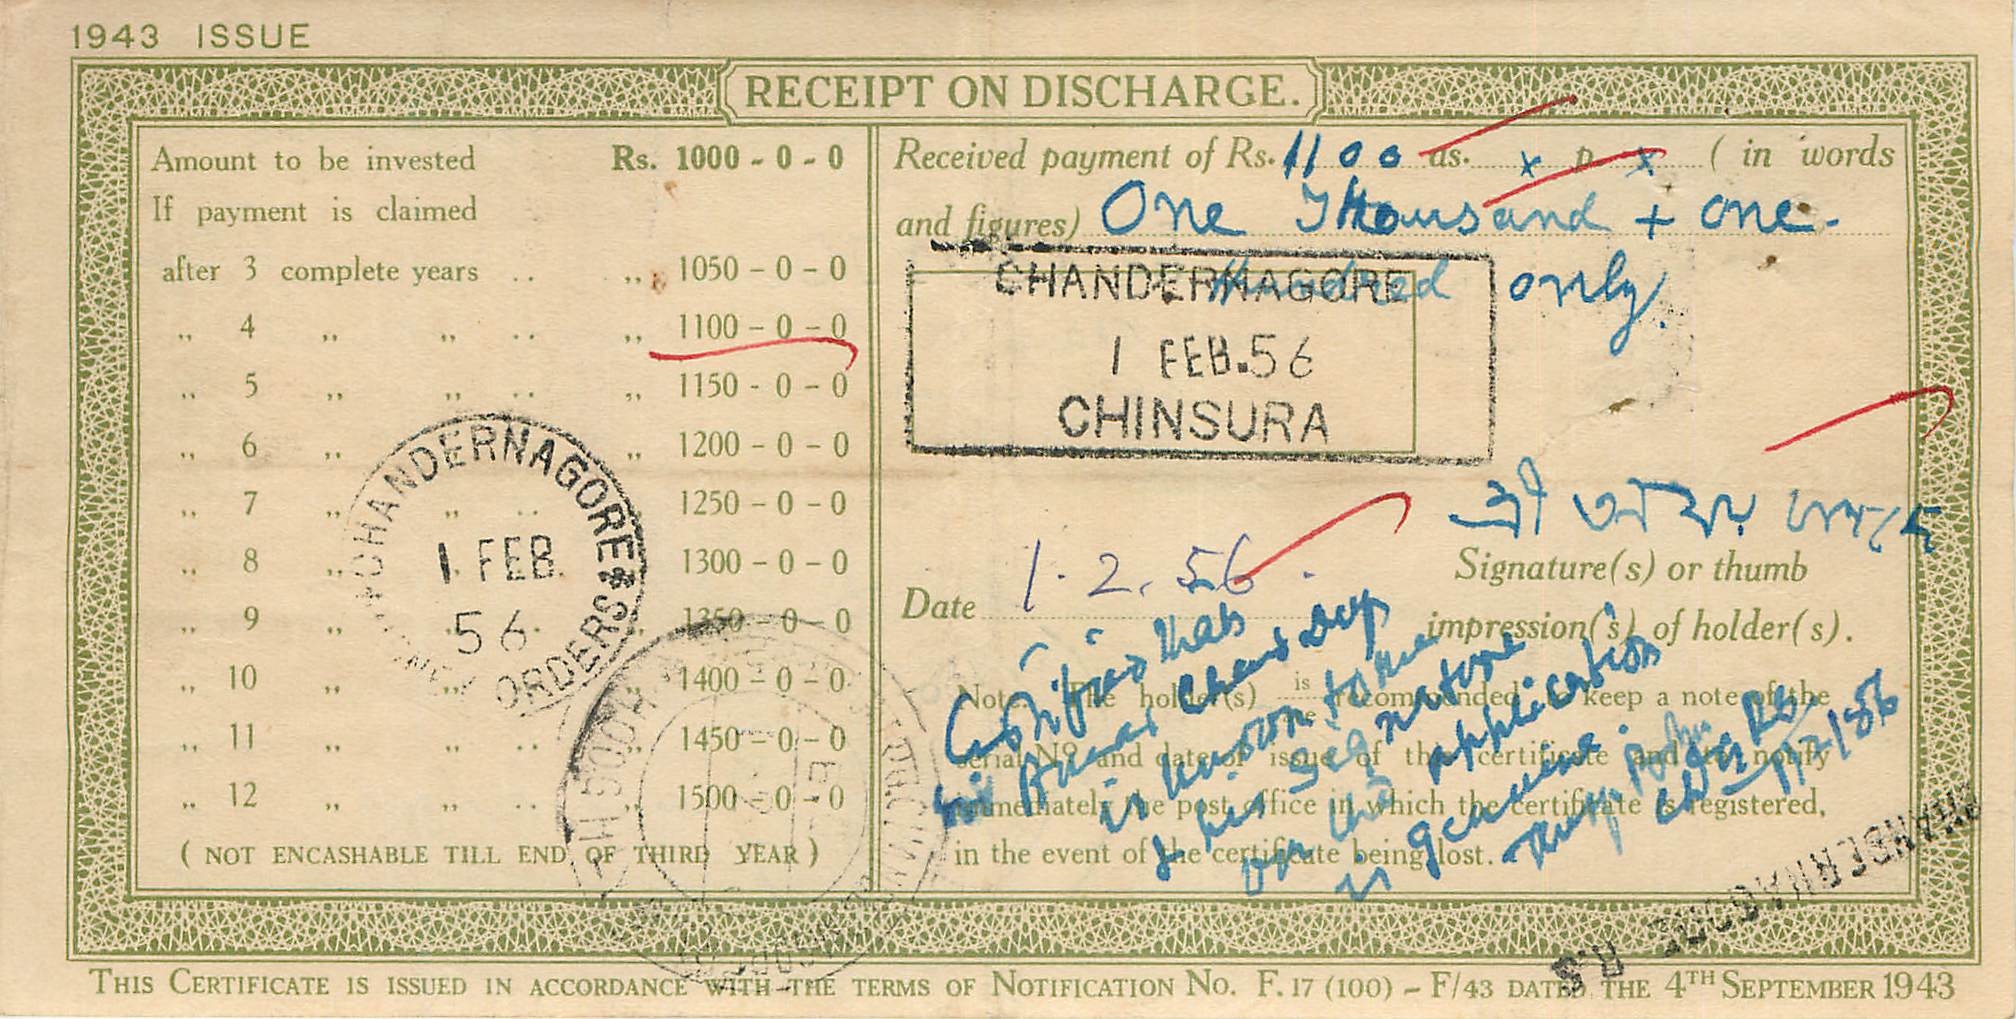 1943 ISSUE
RECEIPT ON DISCHARGE.
Amount to be invested Rs. 1000 - 0 - 0
If payment is claimed
after 3 complete years . . ,, 1050 - 0 - 0
,, 4 ,, ,, . . ,, 1100 - 0 - 0
,, 5 ,, ,, . . ,, 1150 - 0 - 0
,, 6 ,, ,, 1200 - 0 - 0
,, 7 ,, ,, . . 1250 - 0 - 0
,, 8 ,, 1300 - 0 - 0
,, 9 ,, 1350 - 0 - 0
,, 10 ,, ,, ,, 1400 - 0 - 0
,, 11 ,, ,, . . ,, 1450 - 0 - 0
,, 12 ,, ,, . . ,, 1500 - 0 - 0
( NOT ENCASHABLE TILL END OF THIRD YEAR )
CHANDERNAGORE
1 FEB.
56
ORDERS
Received payment of Rs. 1100 as. x p. x ( in words
and figures) One Thousand + one
Hundred only.
CHANDERNAGORE
1 FEB.56
CHINSURA
শ্রী
Date 1.2.56
Signature(s) or thumb
impression(s) of holder(s).
Note. The holder(s) is recommended to keep a note of the
serial No. and date of issue of the certificate and to notify
immediately the post office in which the certificate is registered,
in the event of the certificate being lost.
Certified that
is known to me
& his signature
on the application
is genuine.
CHANDERNAGORE R.S
THIS CERTIFICATE IS ISSUED IN ACCORDANCE WITH THE TERMS OF NOTIFICATION NO. F. 17 (100) – F/43 DATED THE 4TH SEPTEMBER 1943